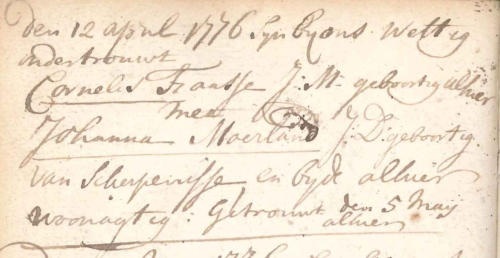 den 12 april 1776 Syn by ons Wettig
ondertrouwt
Cornelis Fraasse J: M. geboortig alhier
met
Johanna Moerland J: D: geboortig
van Scherpenisse en byde alhier
woonagtig: Getrouwt den 5 May
alhier